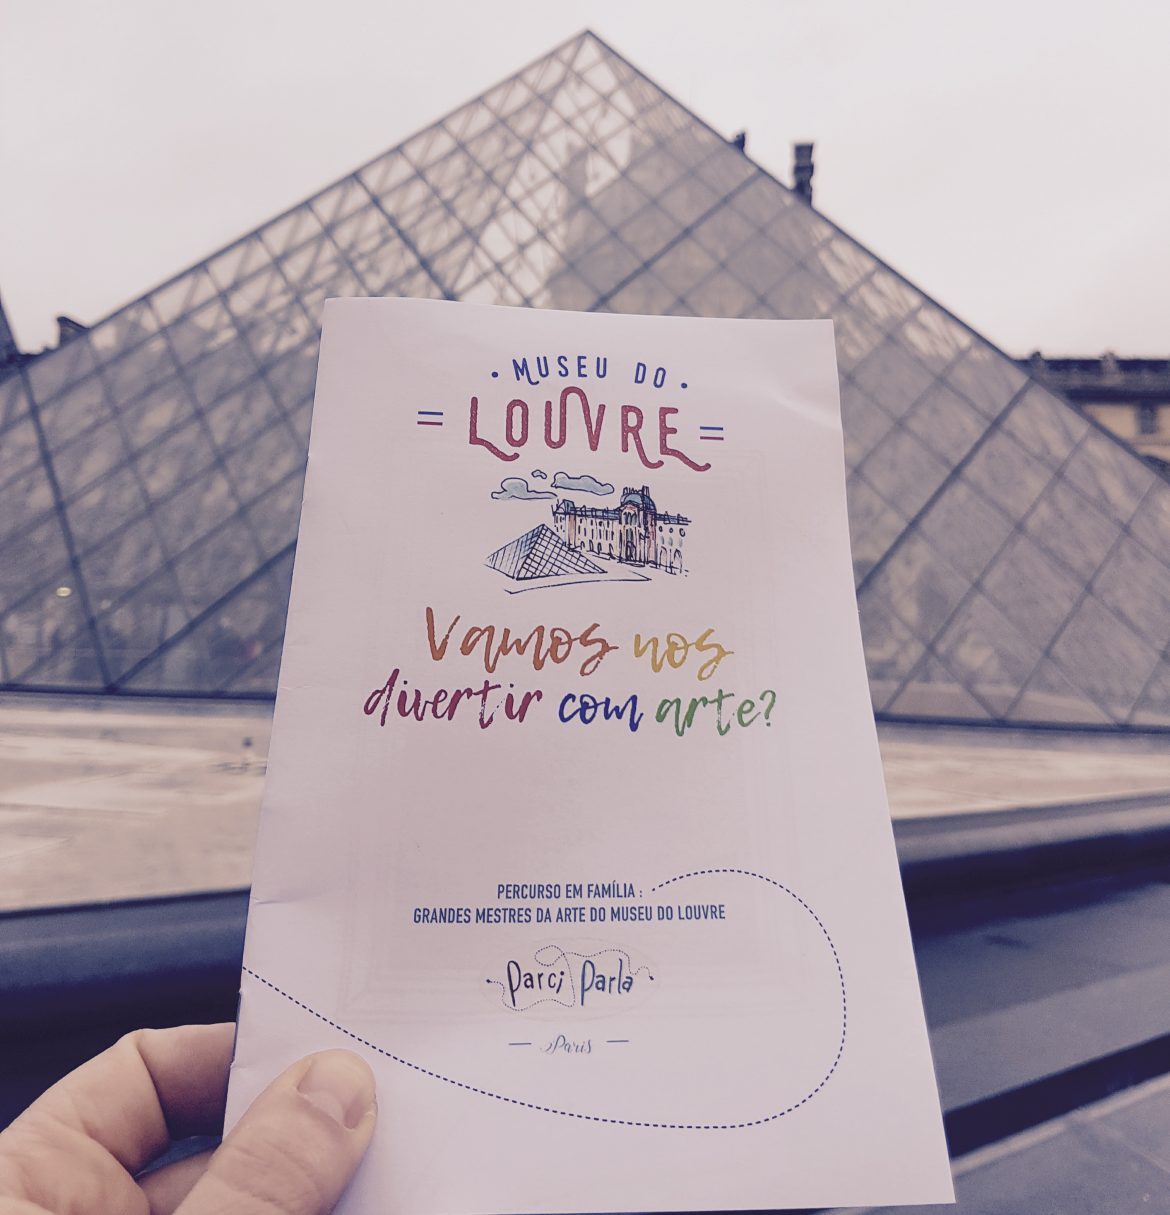 MUSEU DO
LOUVRE
Vamos nos
divertir com arte?
PERCURSO EM FAMÍLIA :
GRANDES MESTRES DA ARTE DO MUSEU DO LOUVRE
Parci Parla
Paris